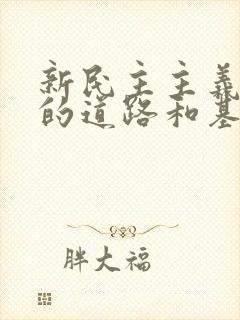 新民主主義
的道路和基
胖大福